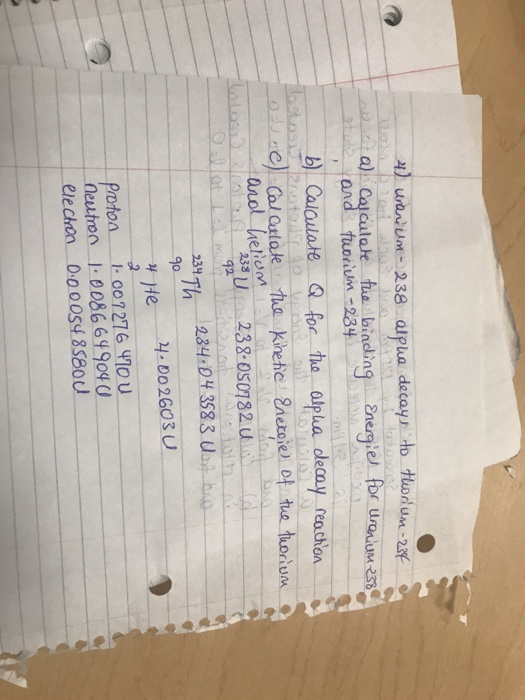 4) Uranium - 238 alpha decays to thorium - 234
a) Calculate the binding Energies for Uranium-238
and thorium - 234
b) Calculate Q for the alpha decay reaction
c) Calculate the Kinetic Energies of the thorium
and helium
238 92 U 238.050782 U
234 90 Th 234.043583 U
4 2 He 4.002603 U
Proton 1.007276470 U
neutron 1.008664904 U
electron 0.000548580 U